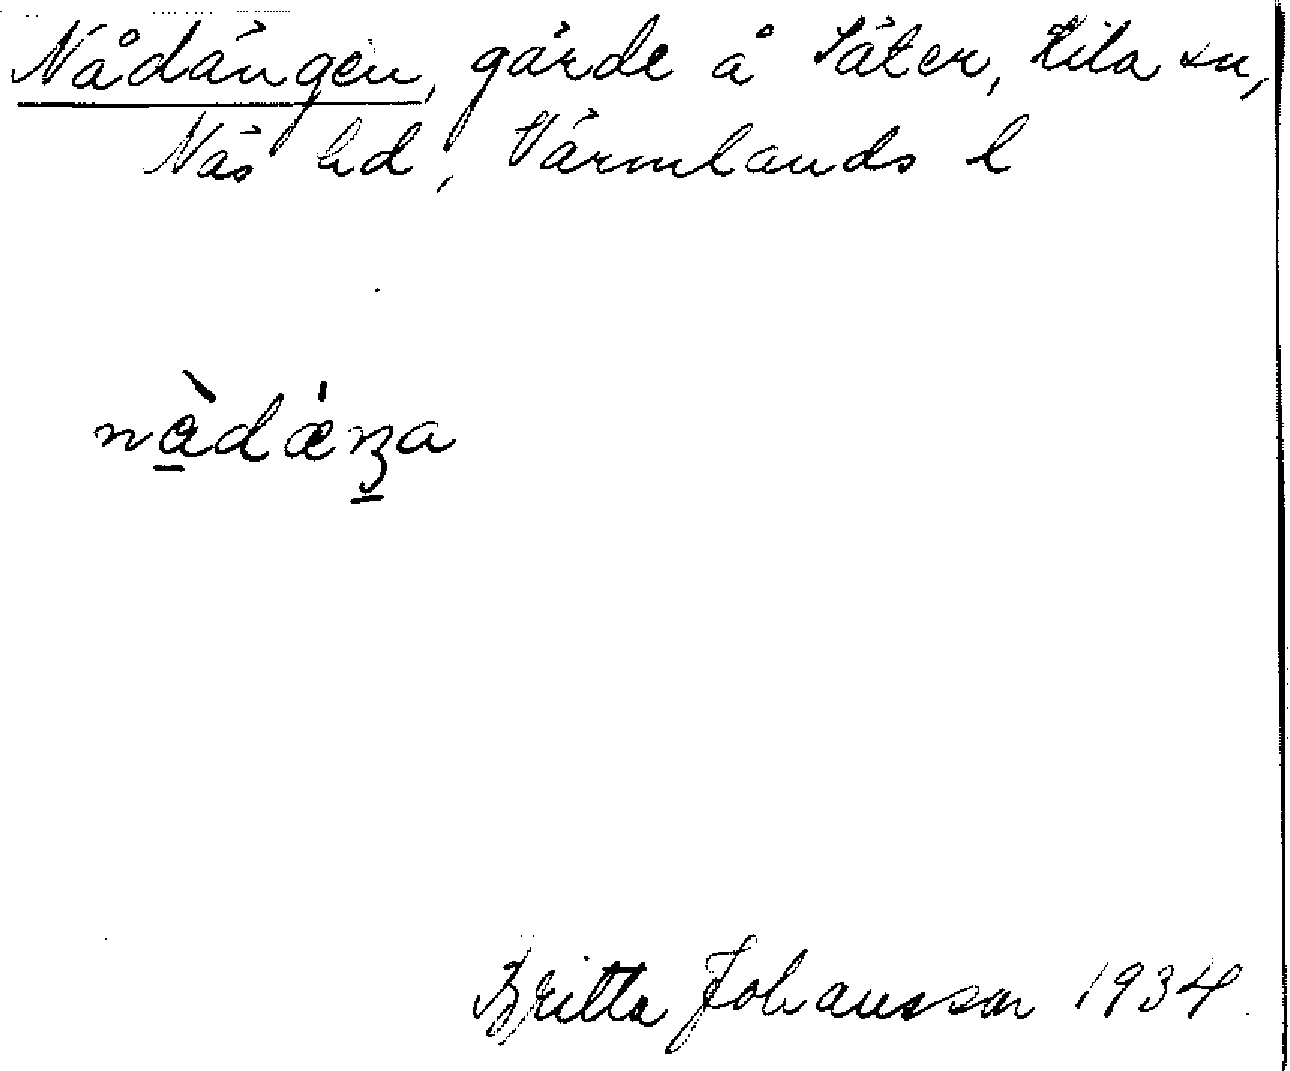 Nådängen, gärde å Säter, Kila sn,
Näs hd, Värmlands l
nàdǽŋa
Britta Johansson 1934